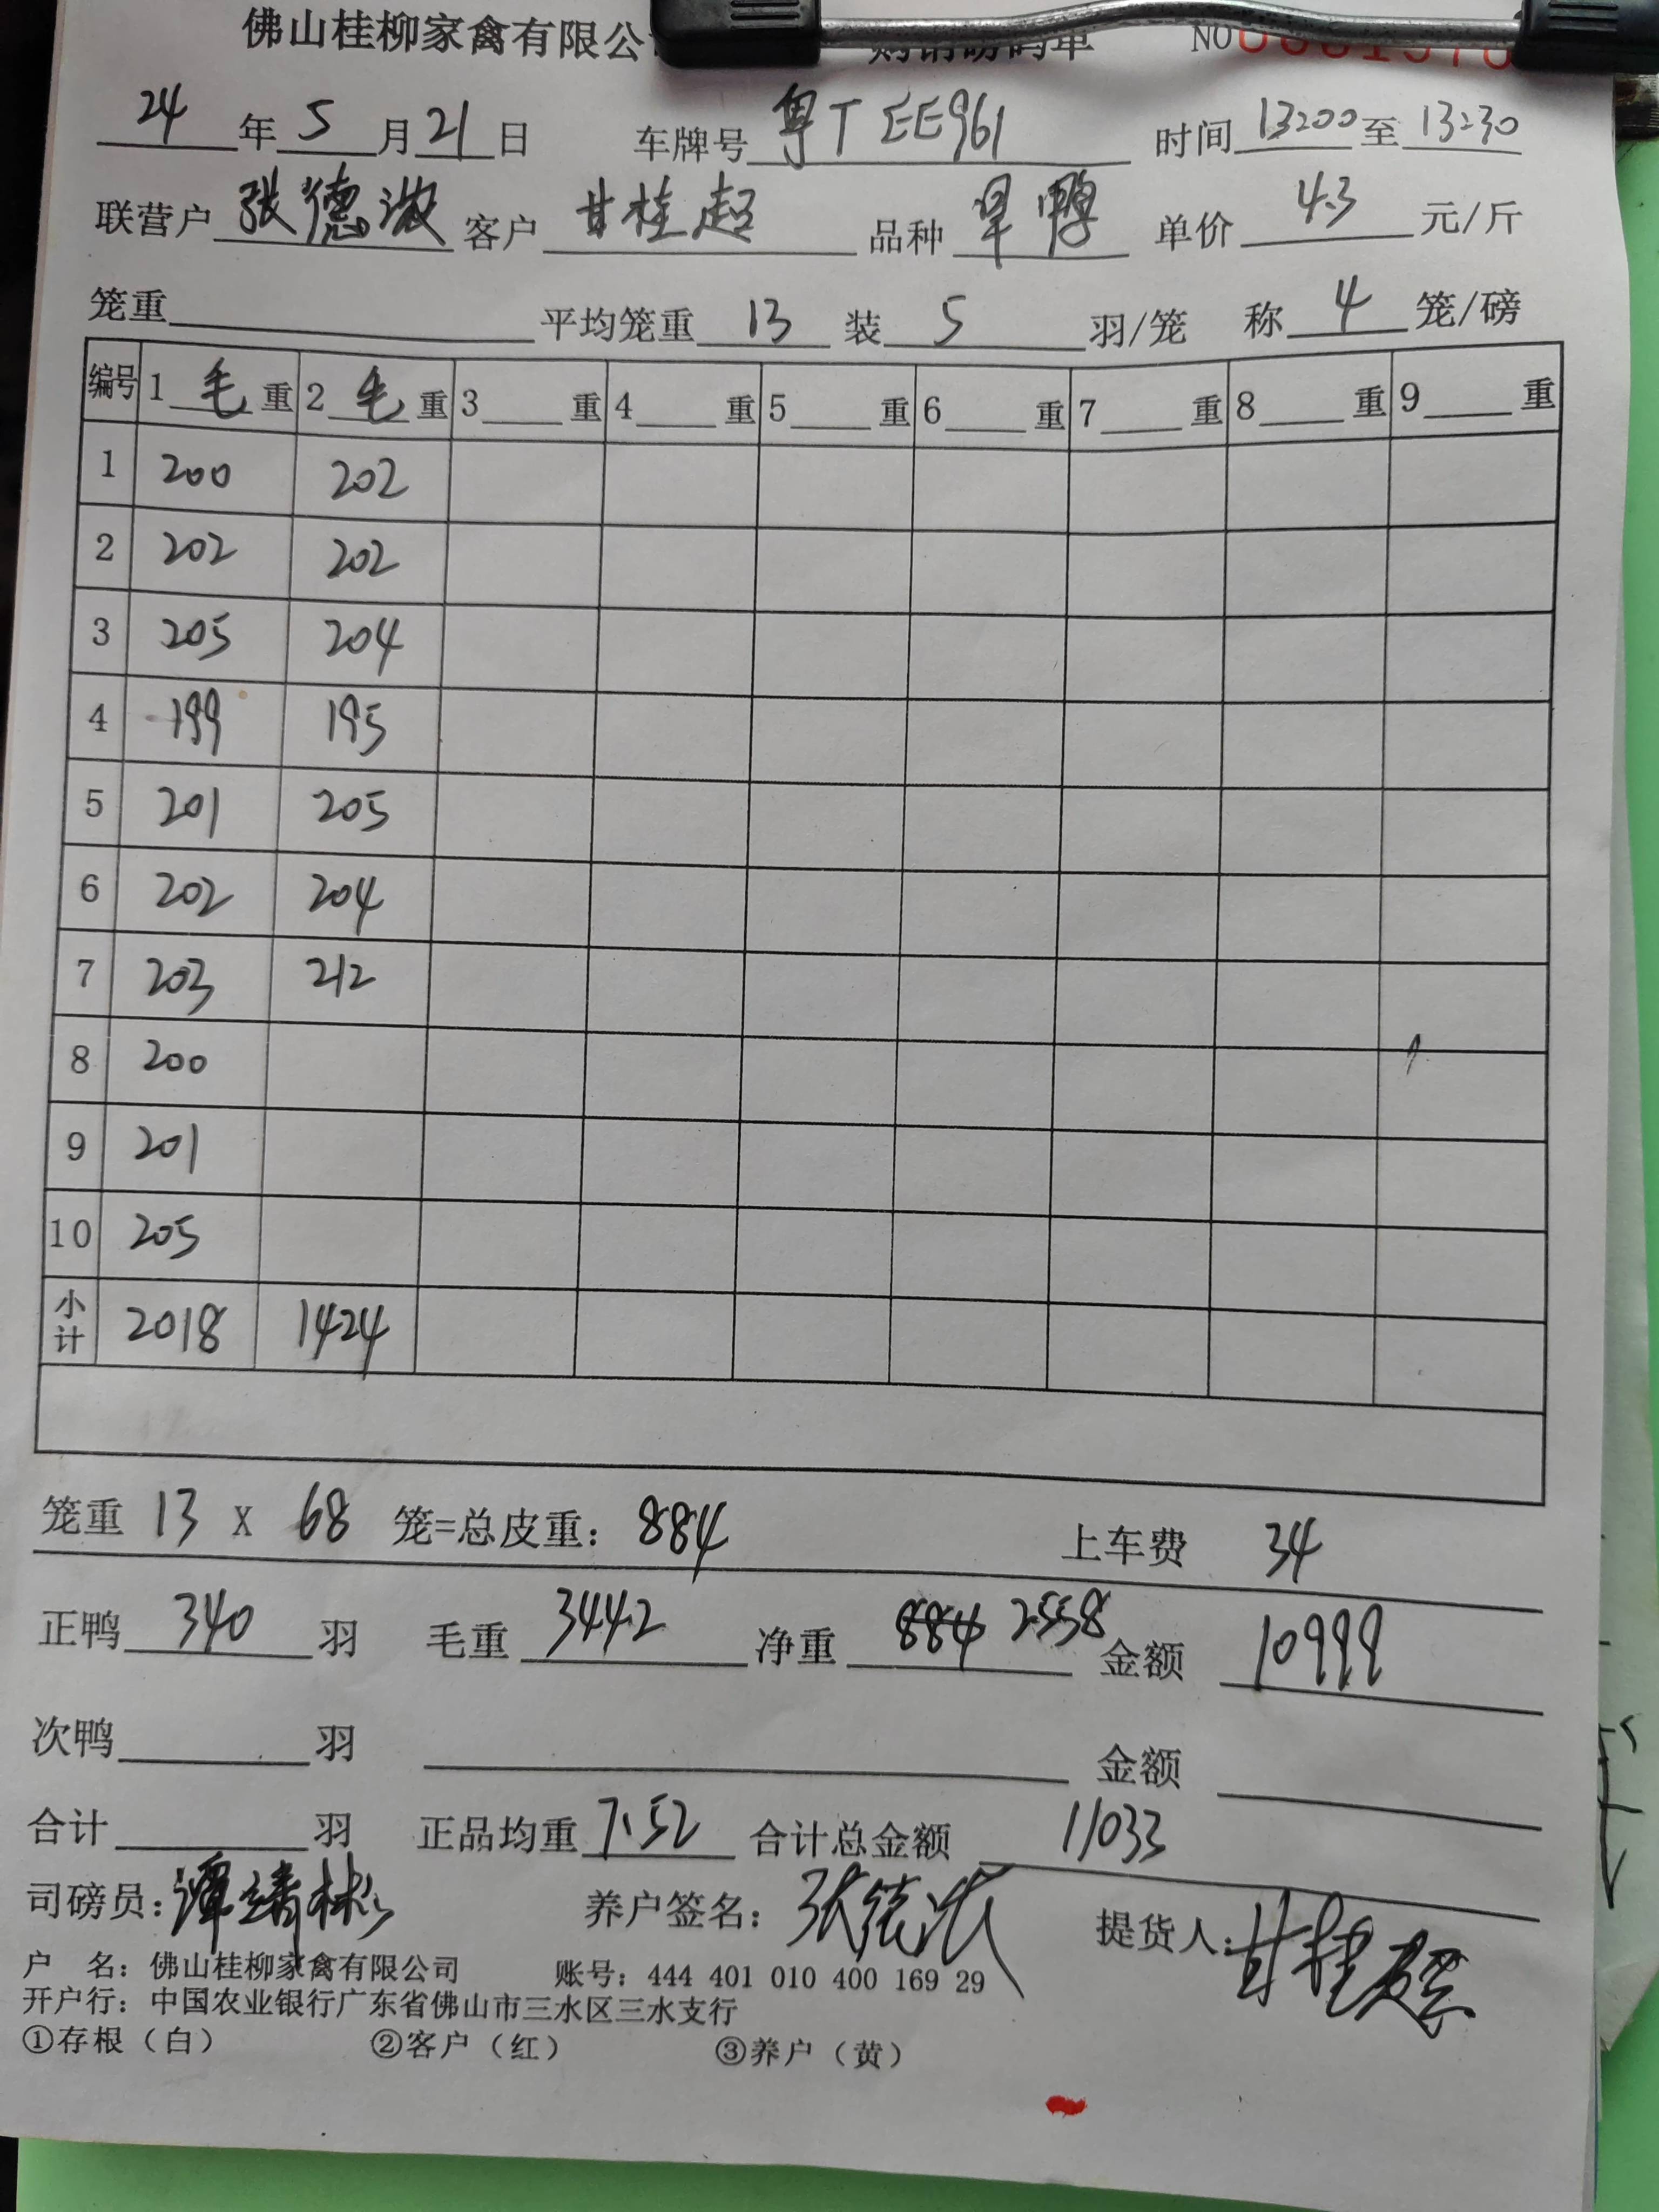 佛山桂柳家禽有限公 购销磅码单 NO
24 年 5 月 21 日 车牌号 粤T EE961 时间 13:00 至 13:30
联营户 张德 客户 甘桂超 品种 旱鸭 单价 4.3 元/斤
笼重 平均笼重 13 装 5 羽/笼 称 4 笼/磅
编号 1 毛 重 2 毛 重 3 重 4 重 5 重 6 重 7 重 8 重 9 重
1 200 202
2 202 202
3 205 204
4 199 195
5 201 205
6 202 204
7 203 212
8 200
9 201
10 205
小计 2018 1424
笼重 13 X 68 笼=总皮重: 884 上车费 34
正鸭 340 羽 毛重 3442 净重 884 2558 金额 10999
次鸭 羽 金额
合计 羽 正品均重 7.52 合计总金额 11033
司磅员: 谭靖彬 养户签名: 张德 提货人: 甘桂超
户 名: 佛山桂柳家禽有限公司 账号: 444 401 010 400 169 29
开户行: 中国农业银行广东省佛山市三水区三水支行
①存根（白） ②客户（红） ③养户（黄）